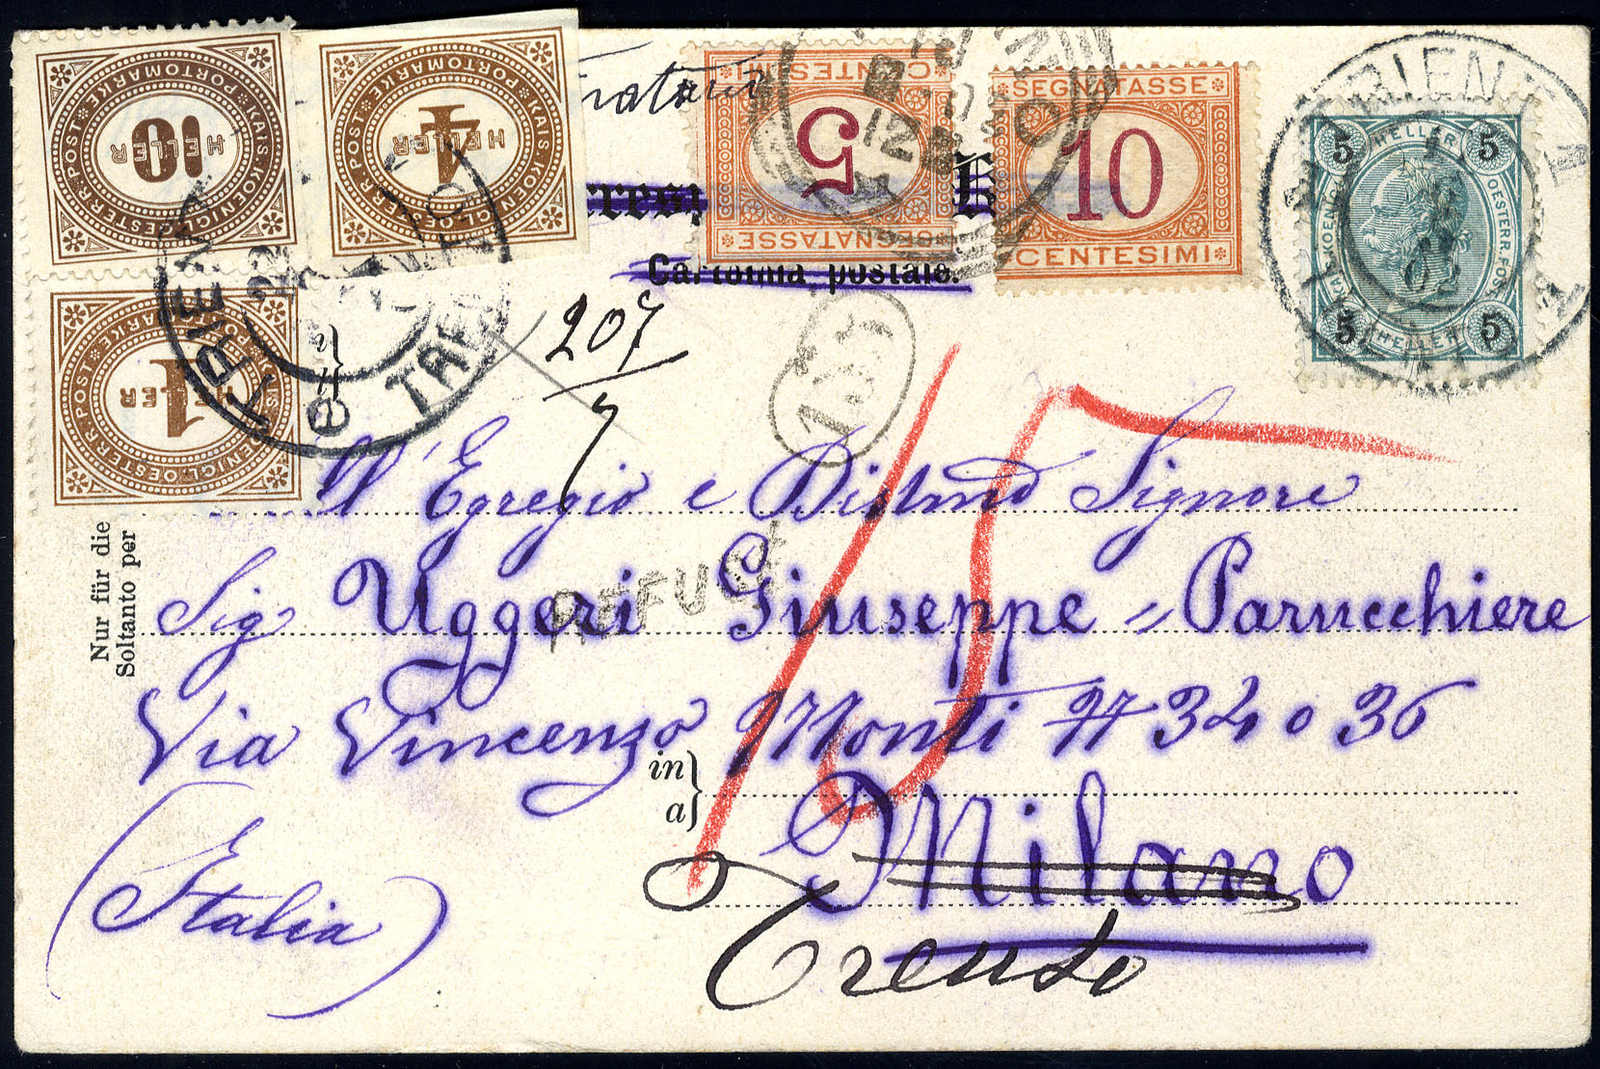 KAIS. KOENIGL. OESTERR. POST
PORTOMARKE
10
HELLER
KAIS. KOENIGL. OESTERR. POST
PORTOMARKE
4
HELLER
KAIS. KOENIGL. OESTERR. POST
PORTOMARKE
1
HELLER
SEGNATASSE
5
CENTESIMI
SEGNATASSE
10
CENTESIMI
5 HELLER 5
5 HELLER 5
TRIENT
Cartolina postale.
207
7
15
L'Egregio e Distinto Signore
Sig Uggeri Giuseppe = Parucchiere
REFUSÉ
Via Vincenzo Monti N 34 o 36
in
a
Milano
(Italia)
Trento
Nur für die
Soltanto per